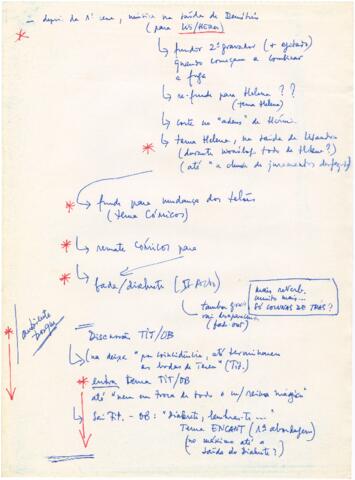 — depois da 1ª cena, música na saída de Demétrio
(para LIS/HERM)
↳ fundir 2º gravador (+ agitado)
quando começam a combinar
a fuga
↳ re-funde para Helena ? ?
(tema Helena)
↳ corte no "adeus" de Hérmia
↳ tema Helena, na saída de Lisandro
(durante monólogo todo de Helena?)
(até "a chuva de juramentos desfez-se")
↳ funde para mudança dos telões
(tema Cómicos)
↳ remate cómicos para
↳ fada/diabrete (IIº Acto)
↳ também
vai desaparecendo
(fade out)
mais reverb.
muito mais...
SÓ COLUNAS DE TRÁS?
ambiente
Discussão TIT/OB
↳ (na deixa "por coincidência, até terminarem
as bodas de Teseu" (Tit.)
↳ entra tema TIT/OB
até "nem em troca de todo o teu reino mágico"
↳ Sai Tit. - OB: "Diabrete, lembras-te ..."
Tema ENCANT (1ª abordagem)
(no máximo até a
saída do diabrete?)